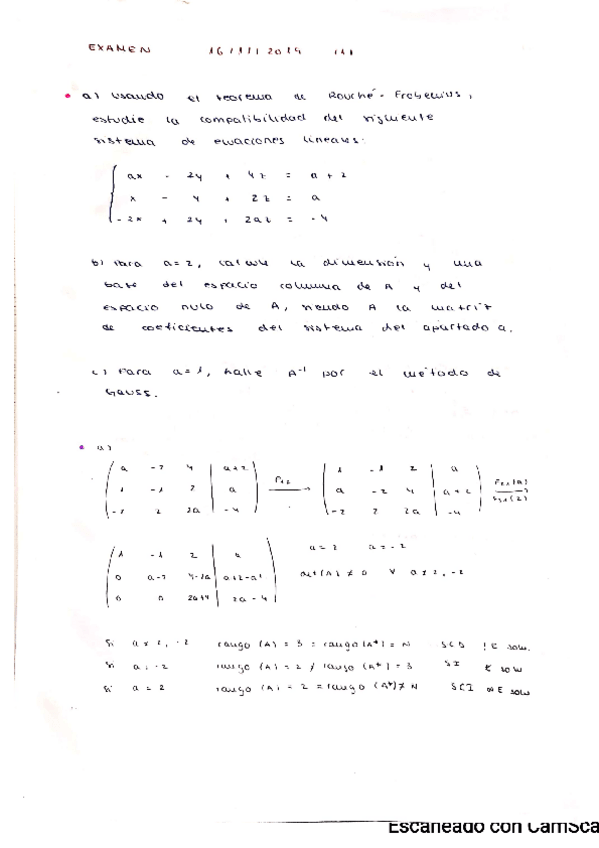 EXAMEN 16/11/2019
a) Usando el teorema de Rouché-Frobenius,
estudie la compatibilidad del siguiente
sistema de ecuaciones lineales.
ax - 2y + 4z = a + 2
x - y + 2z = a
-2x + 2y + 2az = -4
b) Para a=2, calcule la dimensión y una
base del espacio columna de A y del
espacio nulo de A, siendo A la matriz
de coeficientes del sistema del apartado a.
c) Para a=1, halle A⁻¹ por el método de
Gauss.
a)
a -2 4 | a+2 1 -1 2 | a
1 -1 2 | a a -2 4 | a+2
-2 2 2a | -4 -2 2 2a | -4
1 -1 2 | a a=2 a=-2
0 a-2 4-2a | a+2-a² det(A) ≠ 0 ∀ a≠2,-2
0 0 2a+4 | 2a-4
Si a≠2,-2 rango (A) = 3 = rango(A*) = N SCD
Si a=-2 rango (A) = 2 ≠ rango (A*) = 3 SI
Si a = 2 rango (A) = 2 = rango (A*) ≠ N SCI
Escaneado con CamSca